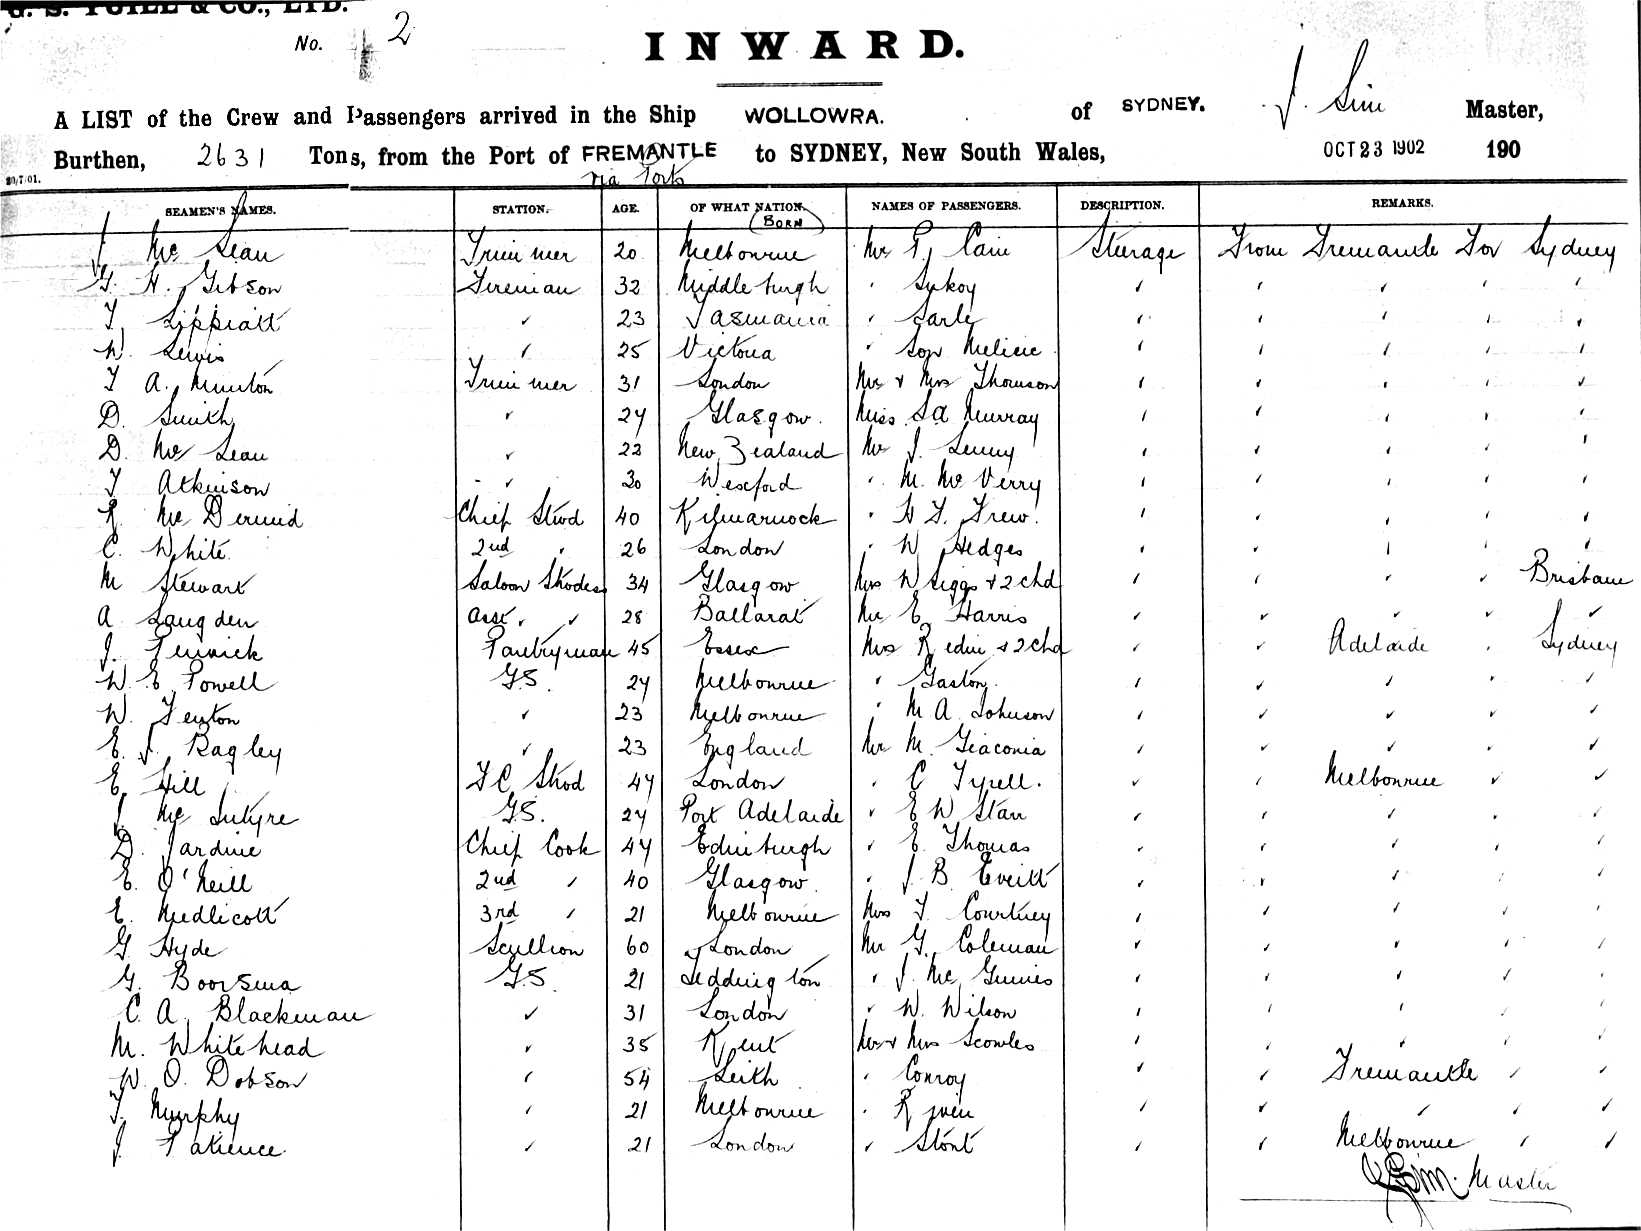 G. S. YUILL & CO., LTD.
No. 2
INWARD.
A LIST of the Crew and Passengers arrived in the Ship WOLLOWRA. of SYDNEY. J. Sim Master,
Burthen, 2631 Tons, from the Port of FREMANTLE to SYDNEY, New South Wales, OCT 23 1902 190
20/7/01. via Ports
SEAMEN'S NAMES. STATION. AGE. OF WHAT NATION. NAMES OF PASSENGERS. DESCRIPTION. REMARKS.
(BORN)
J Mc Lean Trimmer 20 Melbourne Mr P. Cain Steerage From Fremantle For Sydney
G. H. Gibson Fireman 32 Middleburgh " Sykoy " " " " "
T. Lippiatt " 23 Tasmania " Sarle " " " " "
W. Lewis " 25 Victoria " " " " " "
T A. Munton Trimmer 31 London Mr & Mrs Thomson " " " " "
D. Smith " 27 Glasgow. Miss S A Murray " " " " "
D. Mc Lean " 22 New Zealand Mr J. Lenny " " " " "
T Atkinson " 30 Wexford " M. Mc Verry " " " " "
R. Mc Dermid Chief Stwd 40 Kilmarnock " H T. Frew. " " " " "
C. White 2nd " 26 London " W Hedges " " " " "
M Stewart Saloon Stwdess 34 Glasgow Mrs W Siggs & 2 chd " " " " Brisbane
A. Langden Asst. " 28 Ballarat Mr E. Harris " " " " "
J. Fenwick Pantryman 45 Essex Mrs Redin & 2 chd " " Adelaide " Sydney
W. E. Powell G.S. 27 Melbourne " Gaston. " " " " "
W. Fenton " 23 Melbourne " M A Johnson " " " " "
E. J. Bagley " 23 England Mr M. Giaconia " " " " "
E. Hill F C Stwd 47 London " C Tyrell. " " Melbourne " "
J. Mc Intyre G.S. 27 Port Adelaide " E W Starr " " " " "
D. Jardine Chief Cook 47 Edinburgh " E. Thomas " " " " "
E. O'Neill 2nd " 40 Glasgow. " J B. Everitt " " " " "
E. Medlicott 3rd " 21 Melbourne Mrs T. Courtney " " " " "
G. Hyde Scullion 60 London Mr G. Coleman " " " " "
G. Boorsma G.S. 21 Teddington " J. Mc Guines " " " " "
C. A. Blackman " 31 London " W. Wilson " " " " "
M. Whitehead " 35 Kent Mr & Mrs Scowles " " " " "
W. O. Dobson " 54 Leith " Conroy " " Fremantle " "
T. Murphy " 21 Melbourne " " " " " "
J. Patience. " 21 London " Stout " " Melbourne " "
J Sim. Master